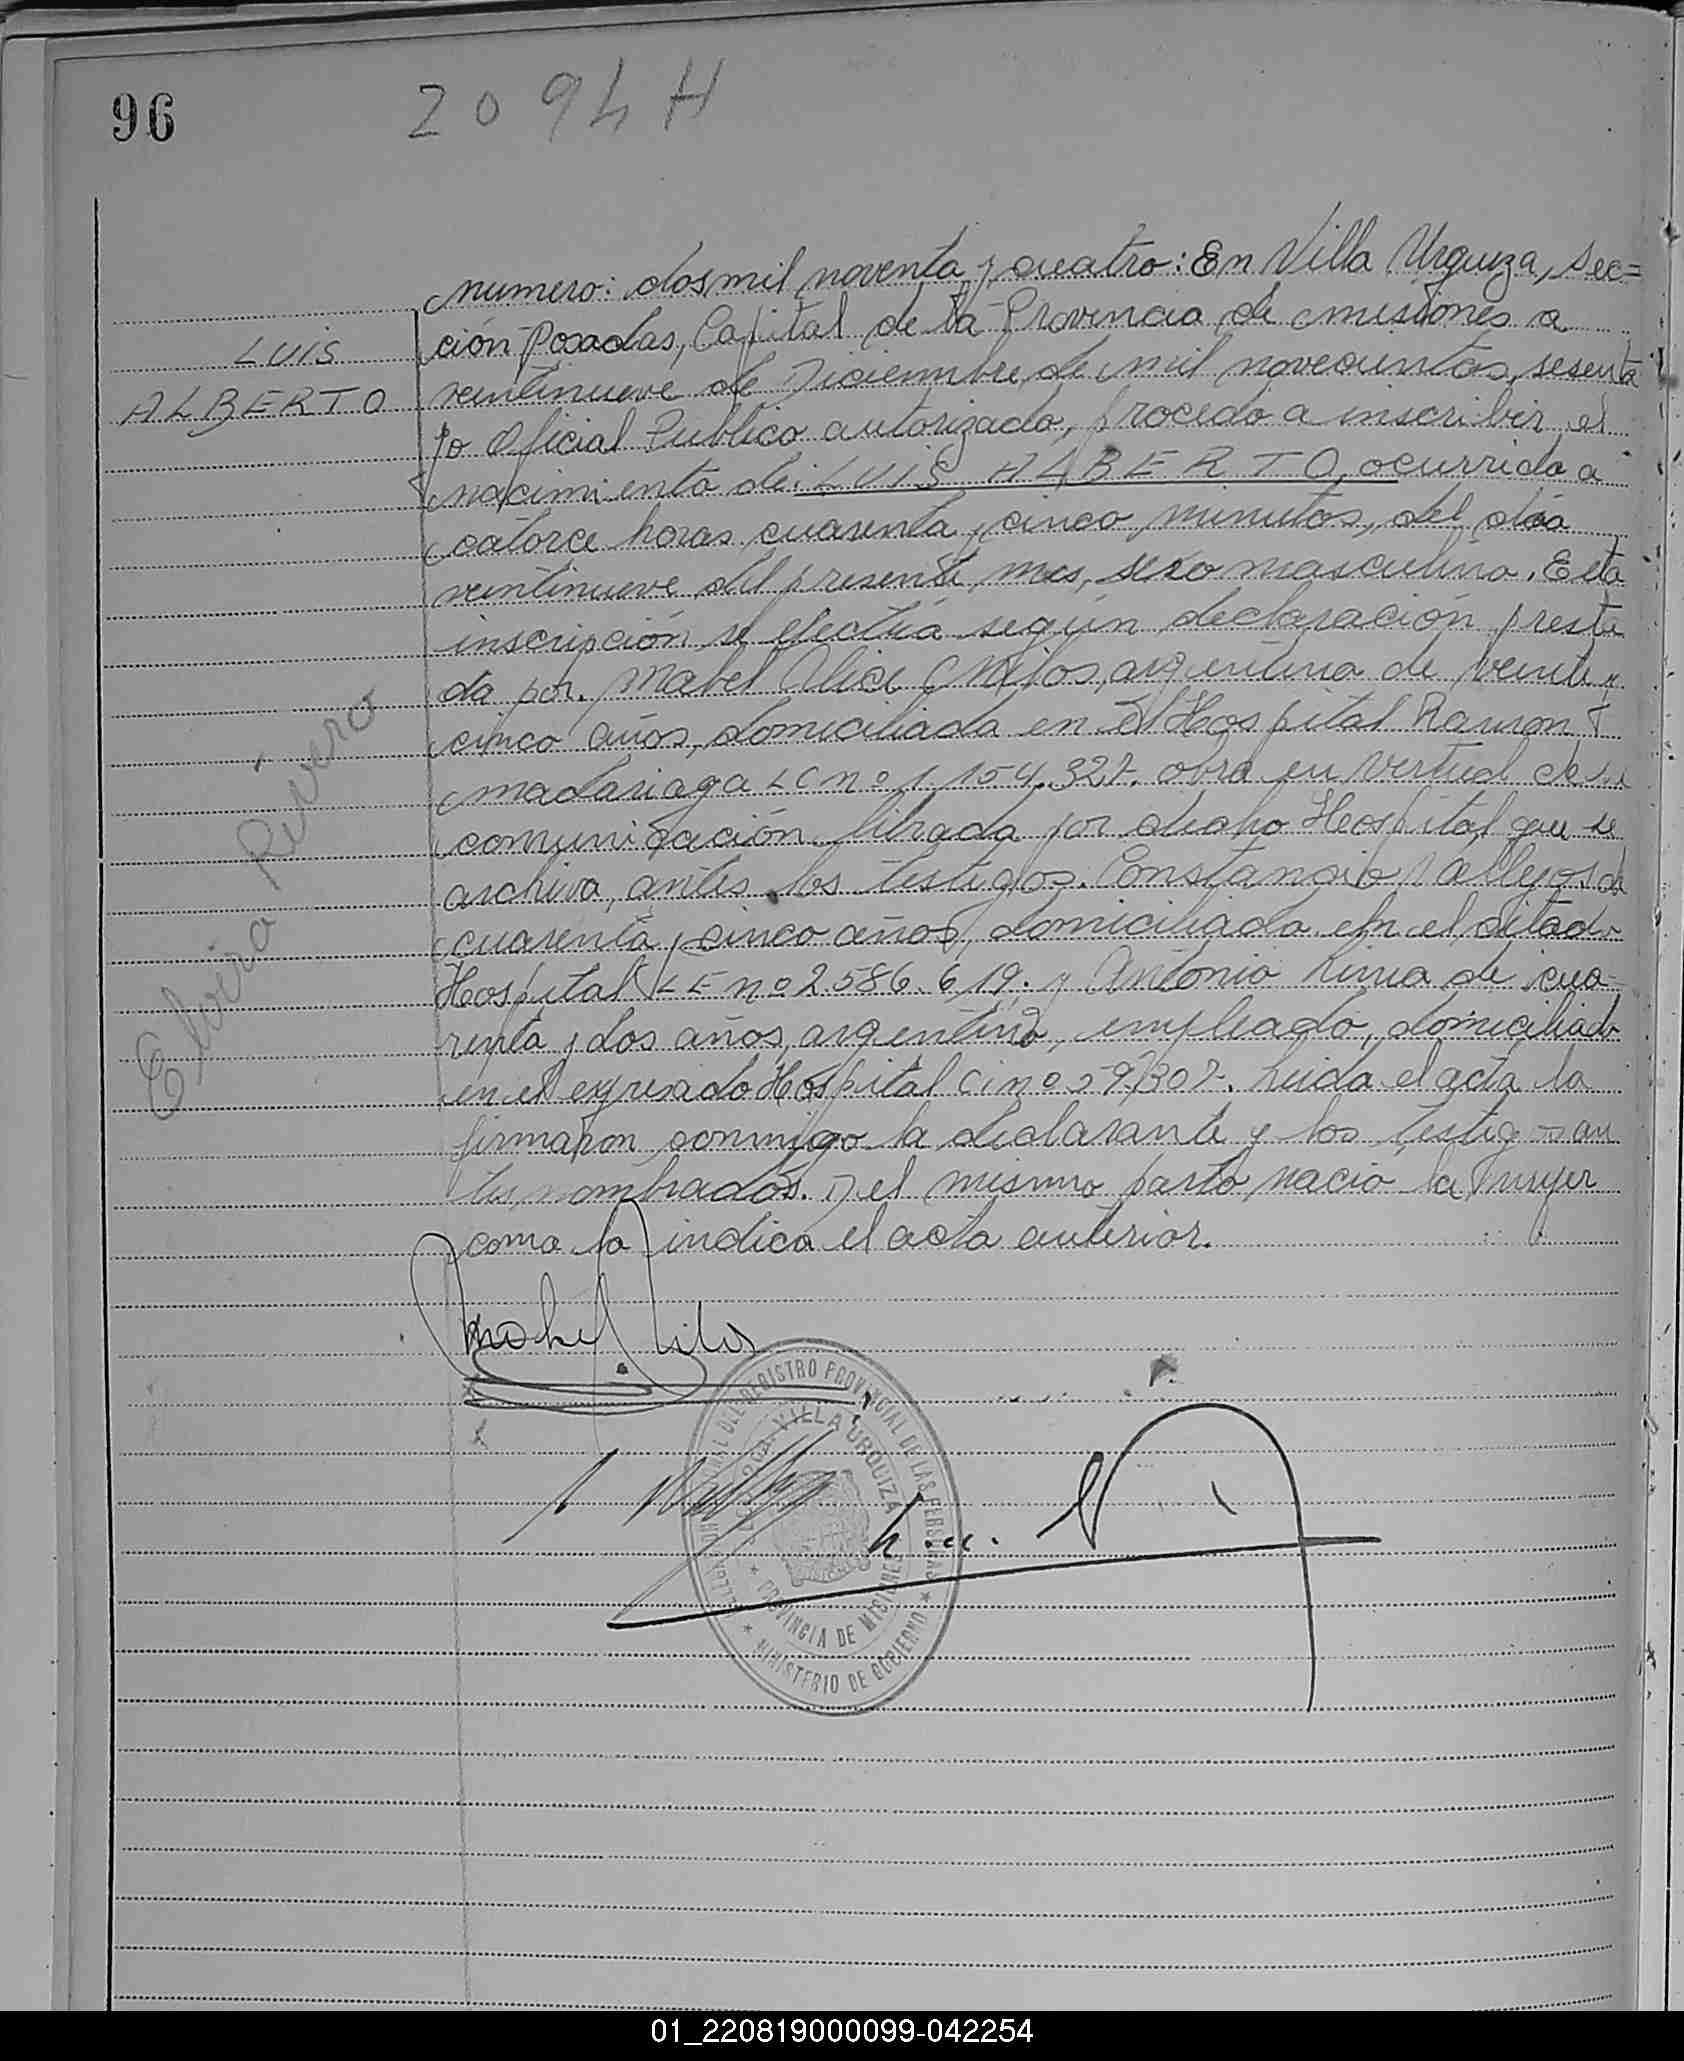 96
2094 H
numero: dosmil noventa y cuatro: En Villa Urquiza, Sec=
ción Posadas, Capital de la Provincia de Misiones a
veintinueve de Diciembre, de mil novecientos, sesenta
yo Oficial Publico autorizado, procedo a inscribir, el
nacimiento de: LUIS ALBERTO, ocurrido a
catorce horas cuarenta y cinco minutos, del día
veintinueve del presente mes, sexo masculino. Esta
inscripción se efectúa según declaración presta
da por. Mabel Alice Milos, argentina de veinte y
cinco años, domiciliada en el Hospital Ramon
madariaga LC nº 1.154.327. obra en vertud de
comunicación librada por dicho Hospital que se
archiva, antes los testigos. Constancio Vallejos de
cuarenta y cinco años, domiciliado en el citado
Hospital LE nº 2.586.619. y Antonio Lima de cua-
renta y dos años, argentino, empleado, domiciliado
en el expresado Hospital Ci nº 59.307. Leida el acta la
firmaron conmigo la declarante y los testigos an
tes, nombrados. Del mismo parto nacio la mujer
como lo indica el acta anterior.
LUIS
ALBERTO
Elvira Rivero
Mabel Milos
REGISTRO PROVINCIAL DE LAS PERSONAS
VILLA URQUIZA
PROVINCIA DE MISIONES
MINISTERIO DE GOBIERNO
01_220819000099-042254